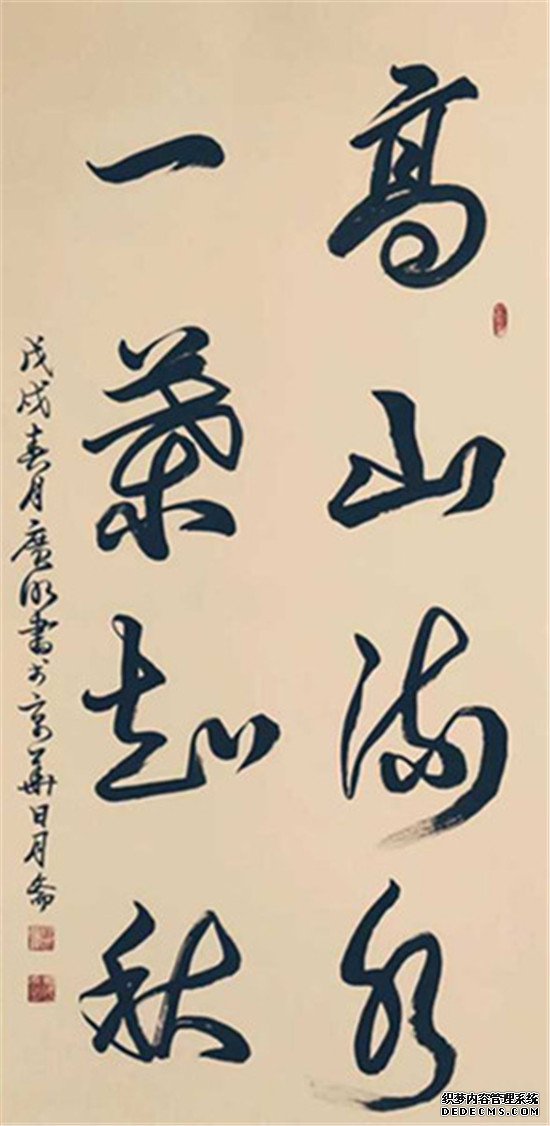 高山流水
一葉知秋
戊戌春月廣明書於京華日月齋
织梦内容管理系统
DEDECMS.COM